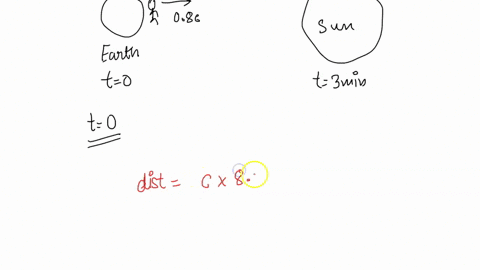 0.8c
Sun
Earth
t=0
t=3min
t=0
dist = c x 8.